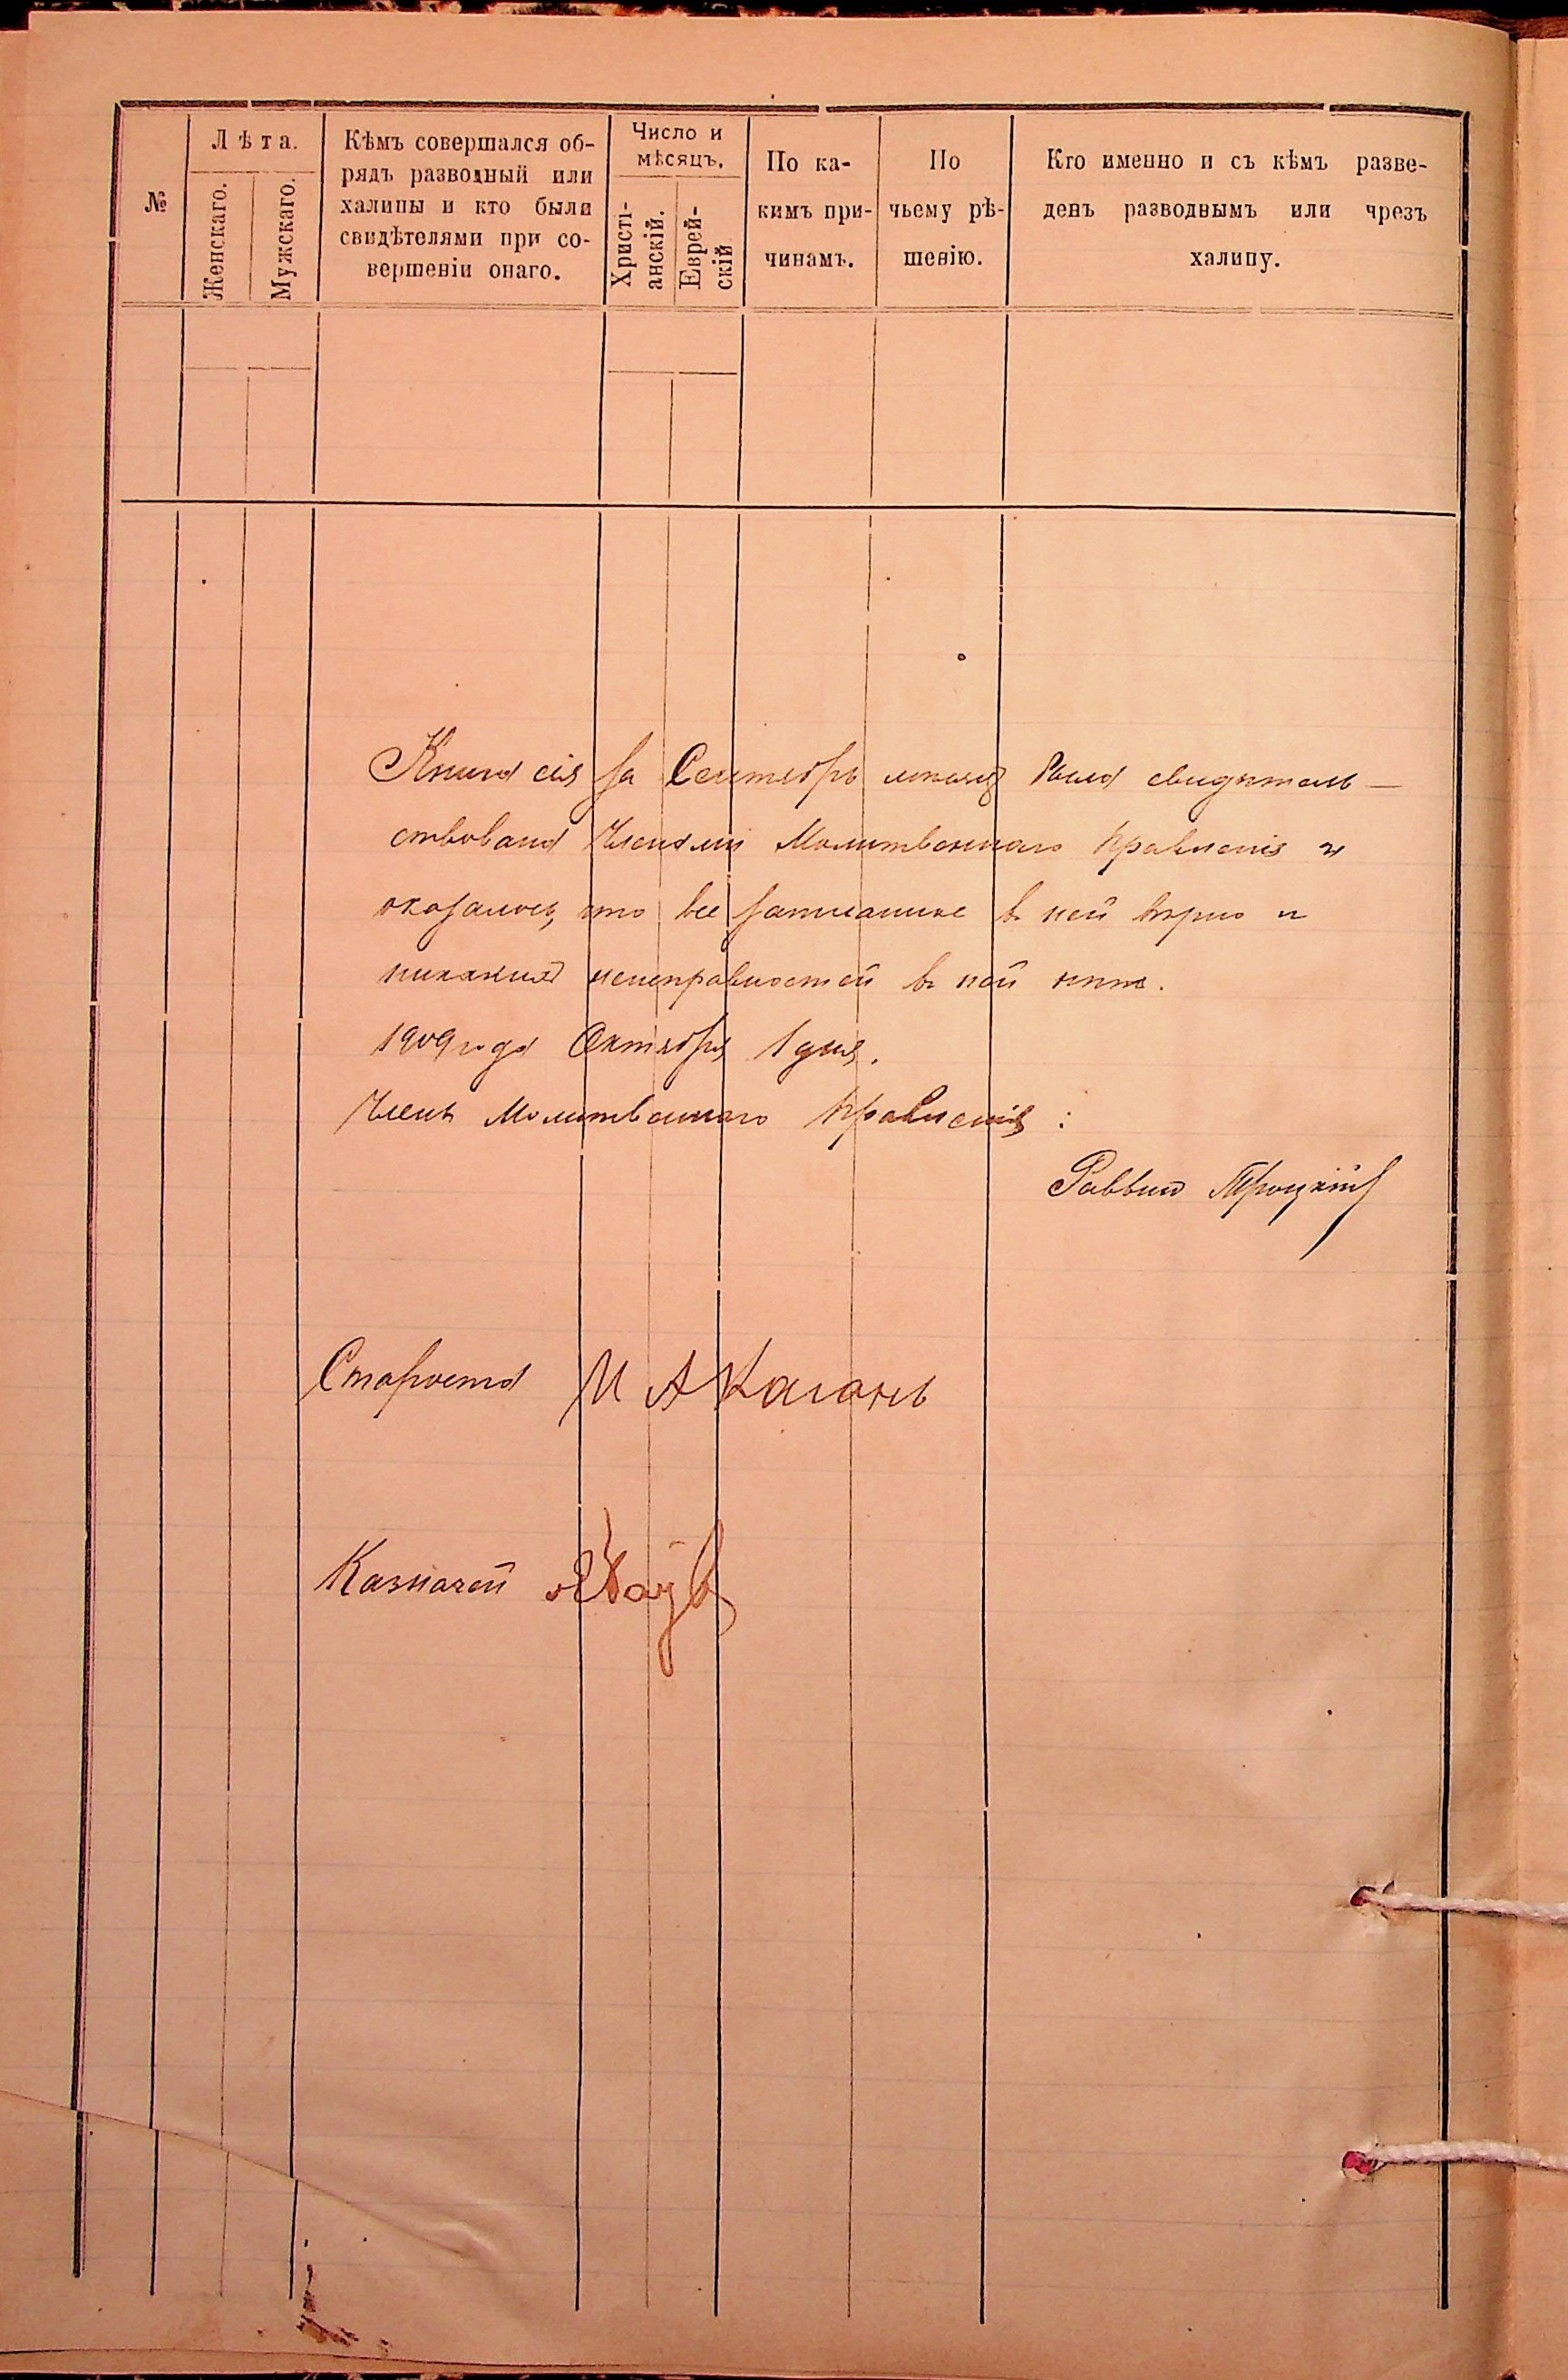 №
Лѣта.
Женскаго.
Мужскаго.
Кѣмъ совершался об-
рядъ разводный или
халипы и кто были
свидѣтелями при со-
вершеніи онаго.
Число и
мѣсяцъ.
Христі-
анскій.
Еврей-
скій
По ка-
кимъ при-
чинамъ.
По
чьему рѣ-
шенію.
Кто именно и съ кѣмъ разве-
денъ разводнымъ или чрезъ
халипу.
Книга сія за Сентябрь мѣсяцъ была свидѣтель-
ствована Членами Молитвеннаго Правленія и
оказалось, что все записанное в ней вѣрно и
никакихъ неисправностей в ней нѣтъ.
1909 года Октября 1 дня.
Члены Молитвеннаго Правленія:
Раввин Троцкій
Староста И А Каганъ
Казначей